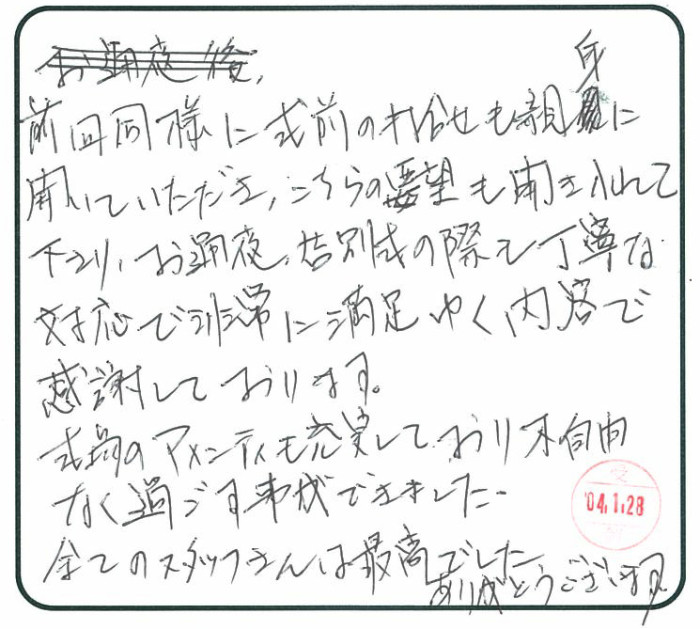 お通夜後、
前回同様に式前の打合せも親身に
聞いていただき、こちらの要望も聞き入れて
下さり、お通夜、告別式の際も丁寧な
対応で非常に満足ゆく内容で
感謝しております。
式場のアメニティも充実しており不自由
なく過ごす事ができました。
全てのスタッフさんは最高でした
ありがとうございます。
受
'04.1.28